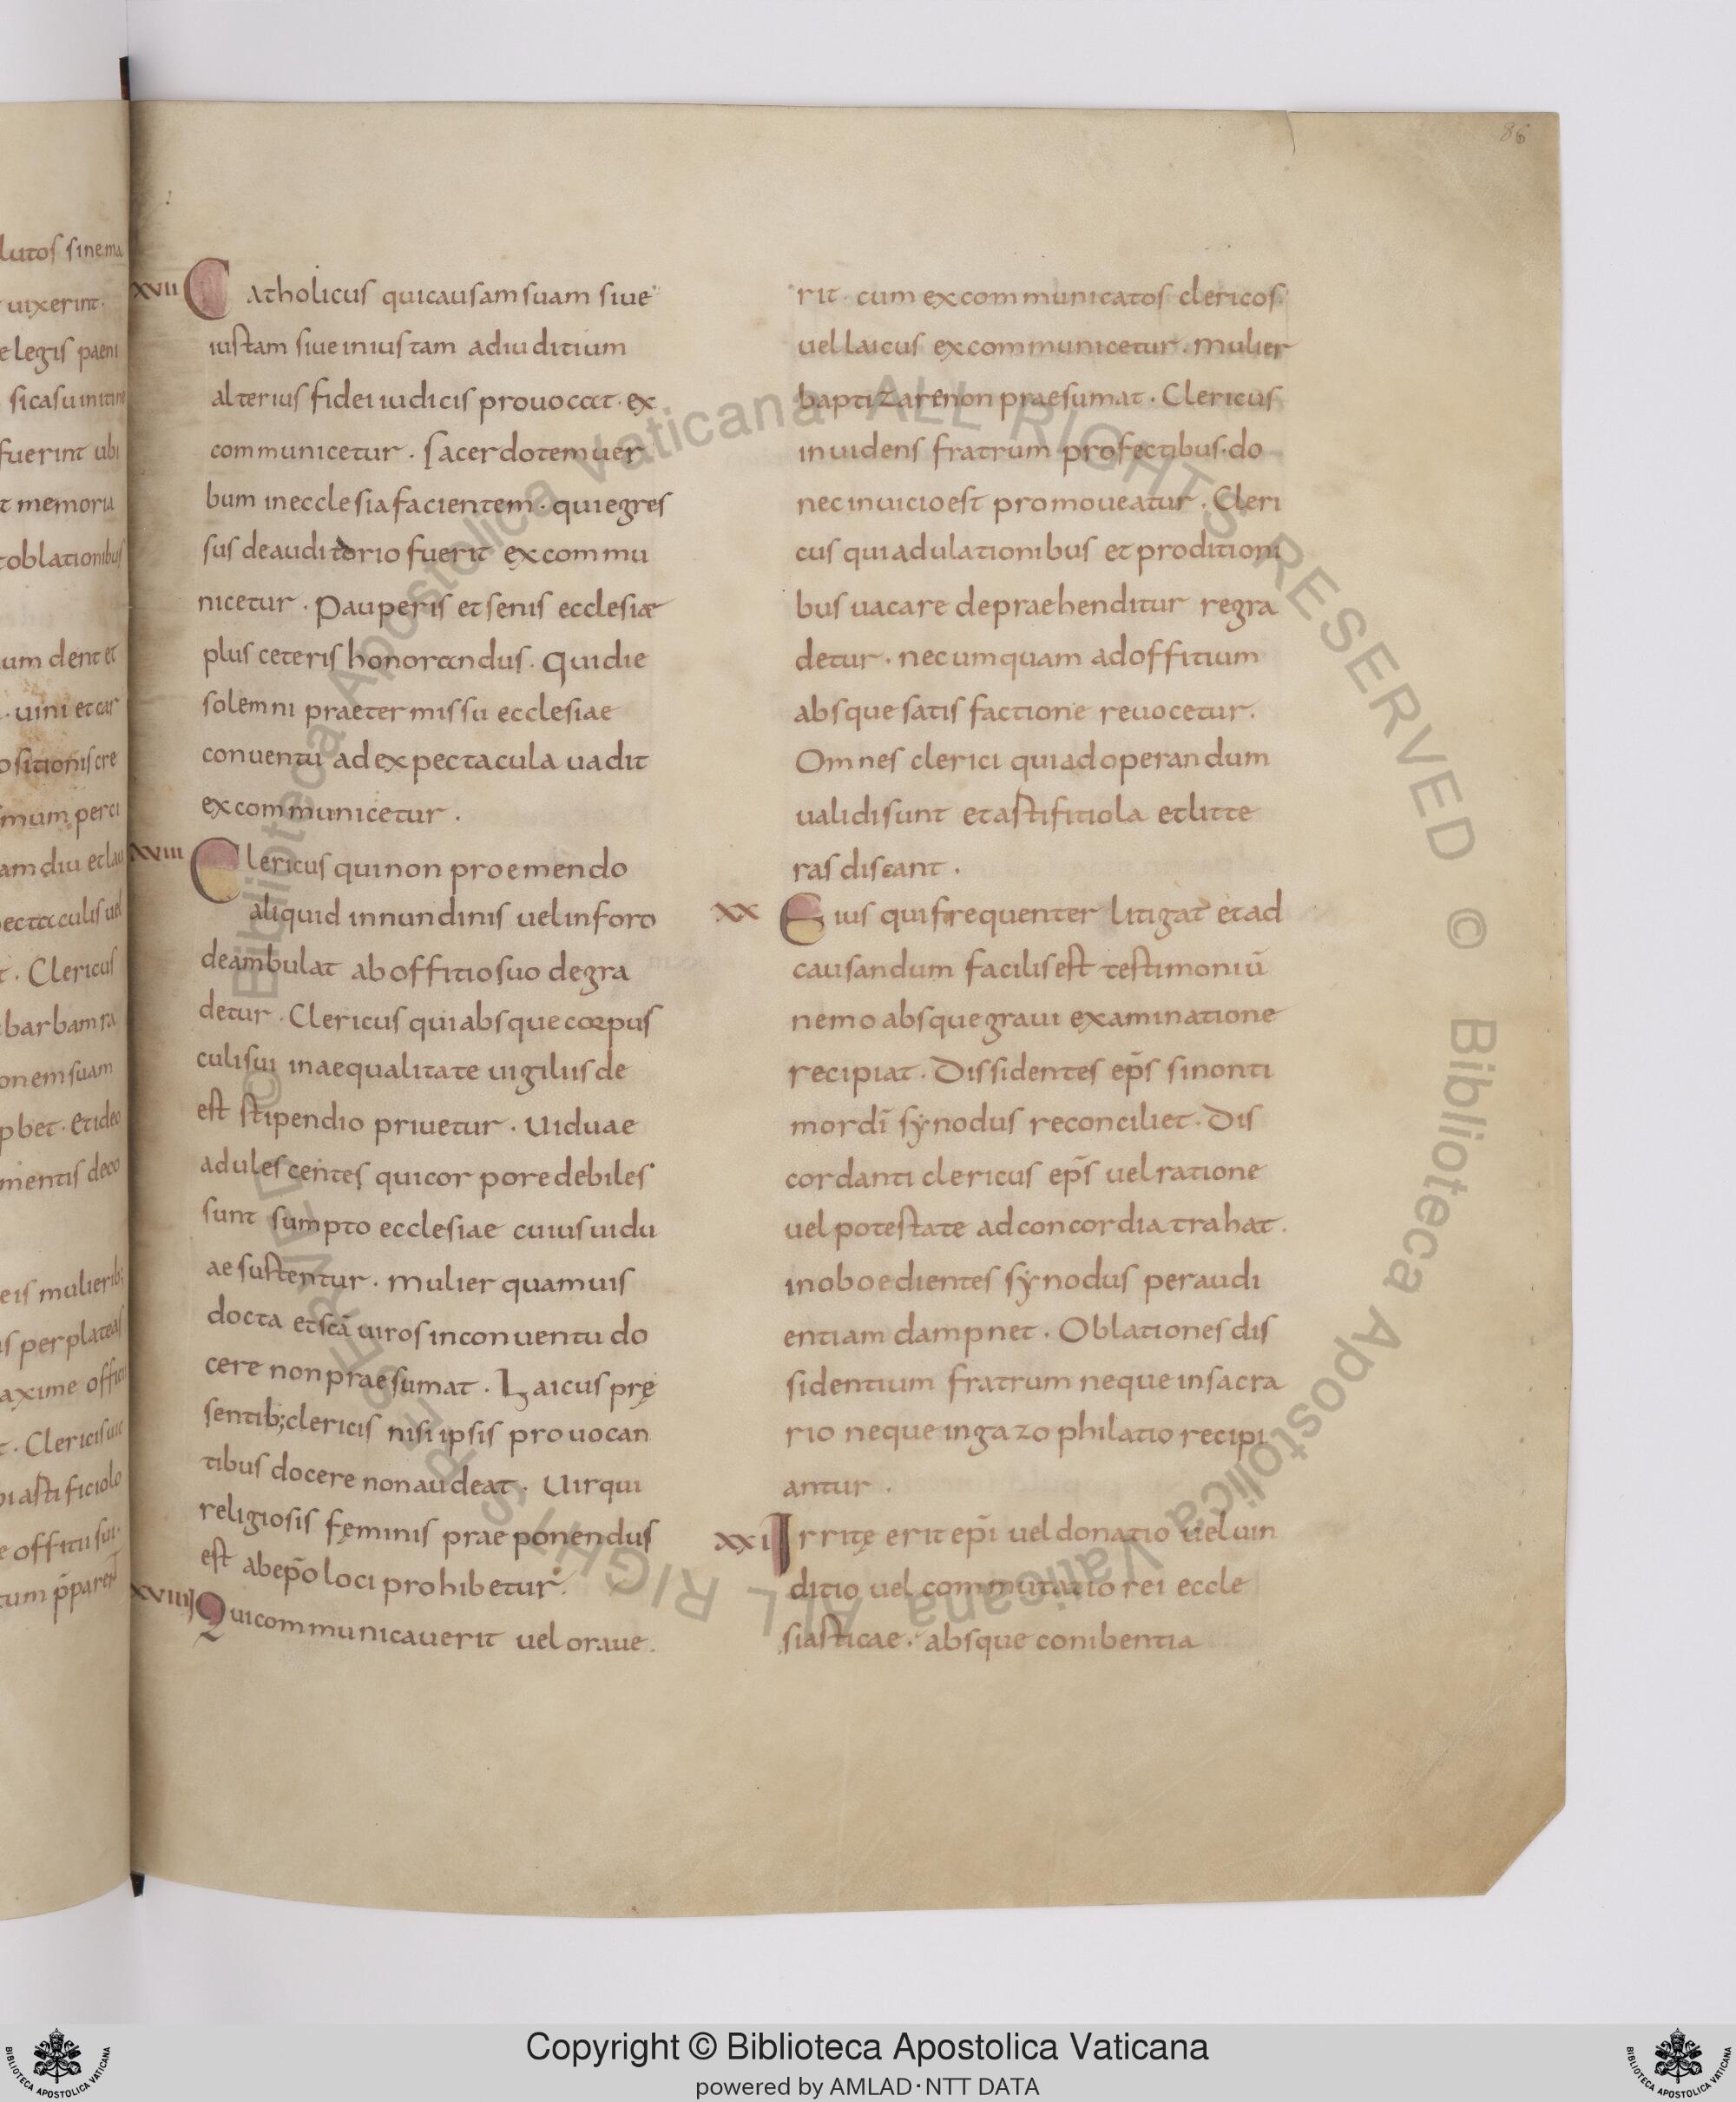 86
XVII Catholicus qui causam suam siue
iustam siue iniustam ad iuditium
alterius fidei iudicis prouocat· ex
communicetur· sacerdotem uer
bum in ecclesia facientem· qui egres
sus de auditorio fuerit excommu
nicetur· Pauperis et senis ecclesiae
plus ceteris honorandus· Qui die
solemni praetermissu ecclesiae
conuentu ad expectacula uadit
excommunicetur·
XVIII Clericus qui non pro emendo
aliquid in nundinis uel in foro
deambulat ab offitio suo degra
detur· Clericus qui absque corpus
culi sui inaequalitate uigiliis de
est stipendio priuetur· Uiduae
adulescentes qui corpore debiles
sunt sumpto ecclesiae cuius uidu
ae sustentur· Mulier quamuis
docta et scā uiros in conuentu do
cere non praesumat· Laicus prę
sentib; clericis nisi ipsis prouocan
tibus docere non audeat· Uir qui
religiosis fęminis praeponendus
est ab ep̄o loci prohibetur·
XVIIII Qui communicauerit uel oraue
rit· cum excommunicatos clericos
uel laicus excommunicetur· mulier
baptizare non praesumat· Clericus
inuidens fratrum profectibus· do
nec in uicio est promoueatur· Cleri
cus qui adulationibus et proditioni
bus uacare depraehenditur regra
detur· nec umquam ad offitium
absque satisfactione reuocetur·
Omnes clerici qui ad operandum
ualidi sunt et astifitiola et litte
ras discant·
XX Eius qui frequenter litigat et ad
causandum facilis est testimoniū
nemo absque graui examinatione
recipiat· Dissidentes ep̄s si non ti
mor dī synodus reconciliet· Dis
cordanti clericus ep̄s uel ratione
uel potestate ad concordia trahat·
inoboedientes synodus per audi
entiam dampnet· Oblationes dis
sidentium fratrum neque in sacra
rio neque in gazophilatio recipi
antur·
XXI Irritę erit ep̄i uel donatio uel uin
ditio uel commutatio rei eccle
siasticae· absque conibentia
Copyright © Biblioteca Apostolica Vaticana
powered by AMLAD·NTT DATA